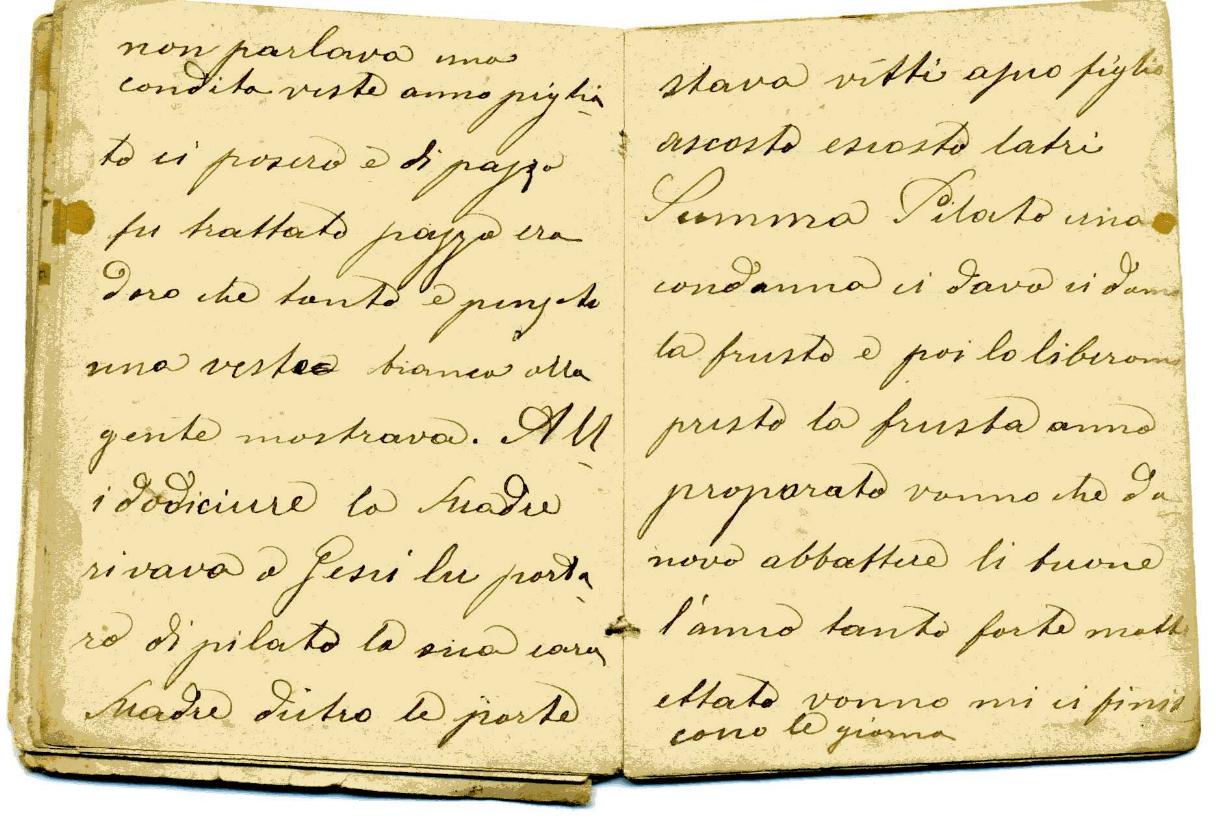 non parlava una
condita veste anno piglia-
to ci posero e di pazzo
fu trattato pazzo era
doro che tanto e
una veste bianca alla
gente mostrava. All-
i dodiciure la Madre
rivava a Gesú lu porta-
ro di pilato la sua cara
Madre dietro le porte
stava vitti a suo figlio
ascosto escosto latri
Summa Pilato una
condanna ci dava ci damo
la frusta e poi lo liberamo
presto la frusta anno
preparato vonno che da
novo abbattere li buone
l'anno tanto forte matt
ettato vonno mi ci finis
cono le giorna